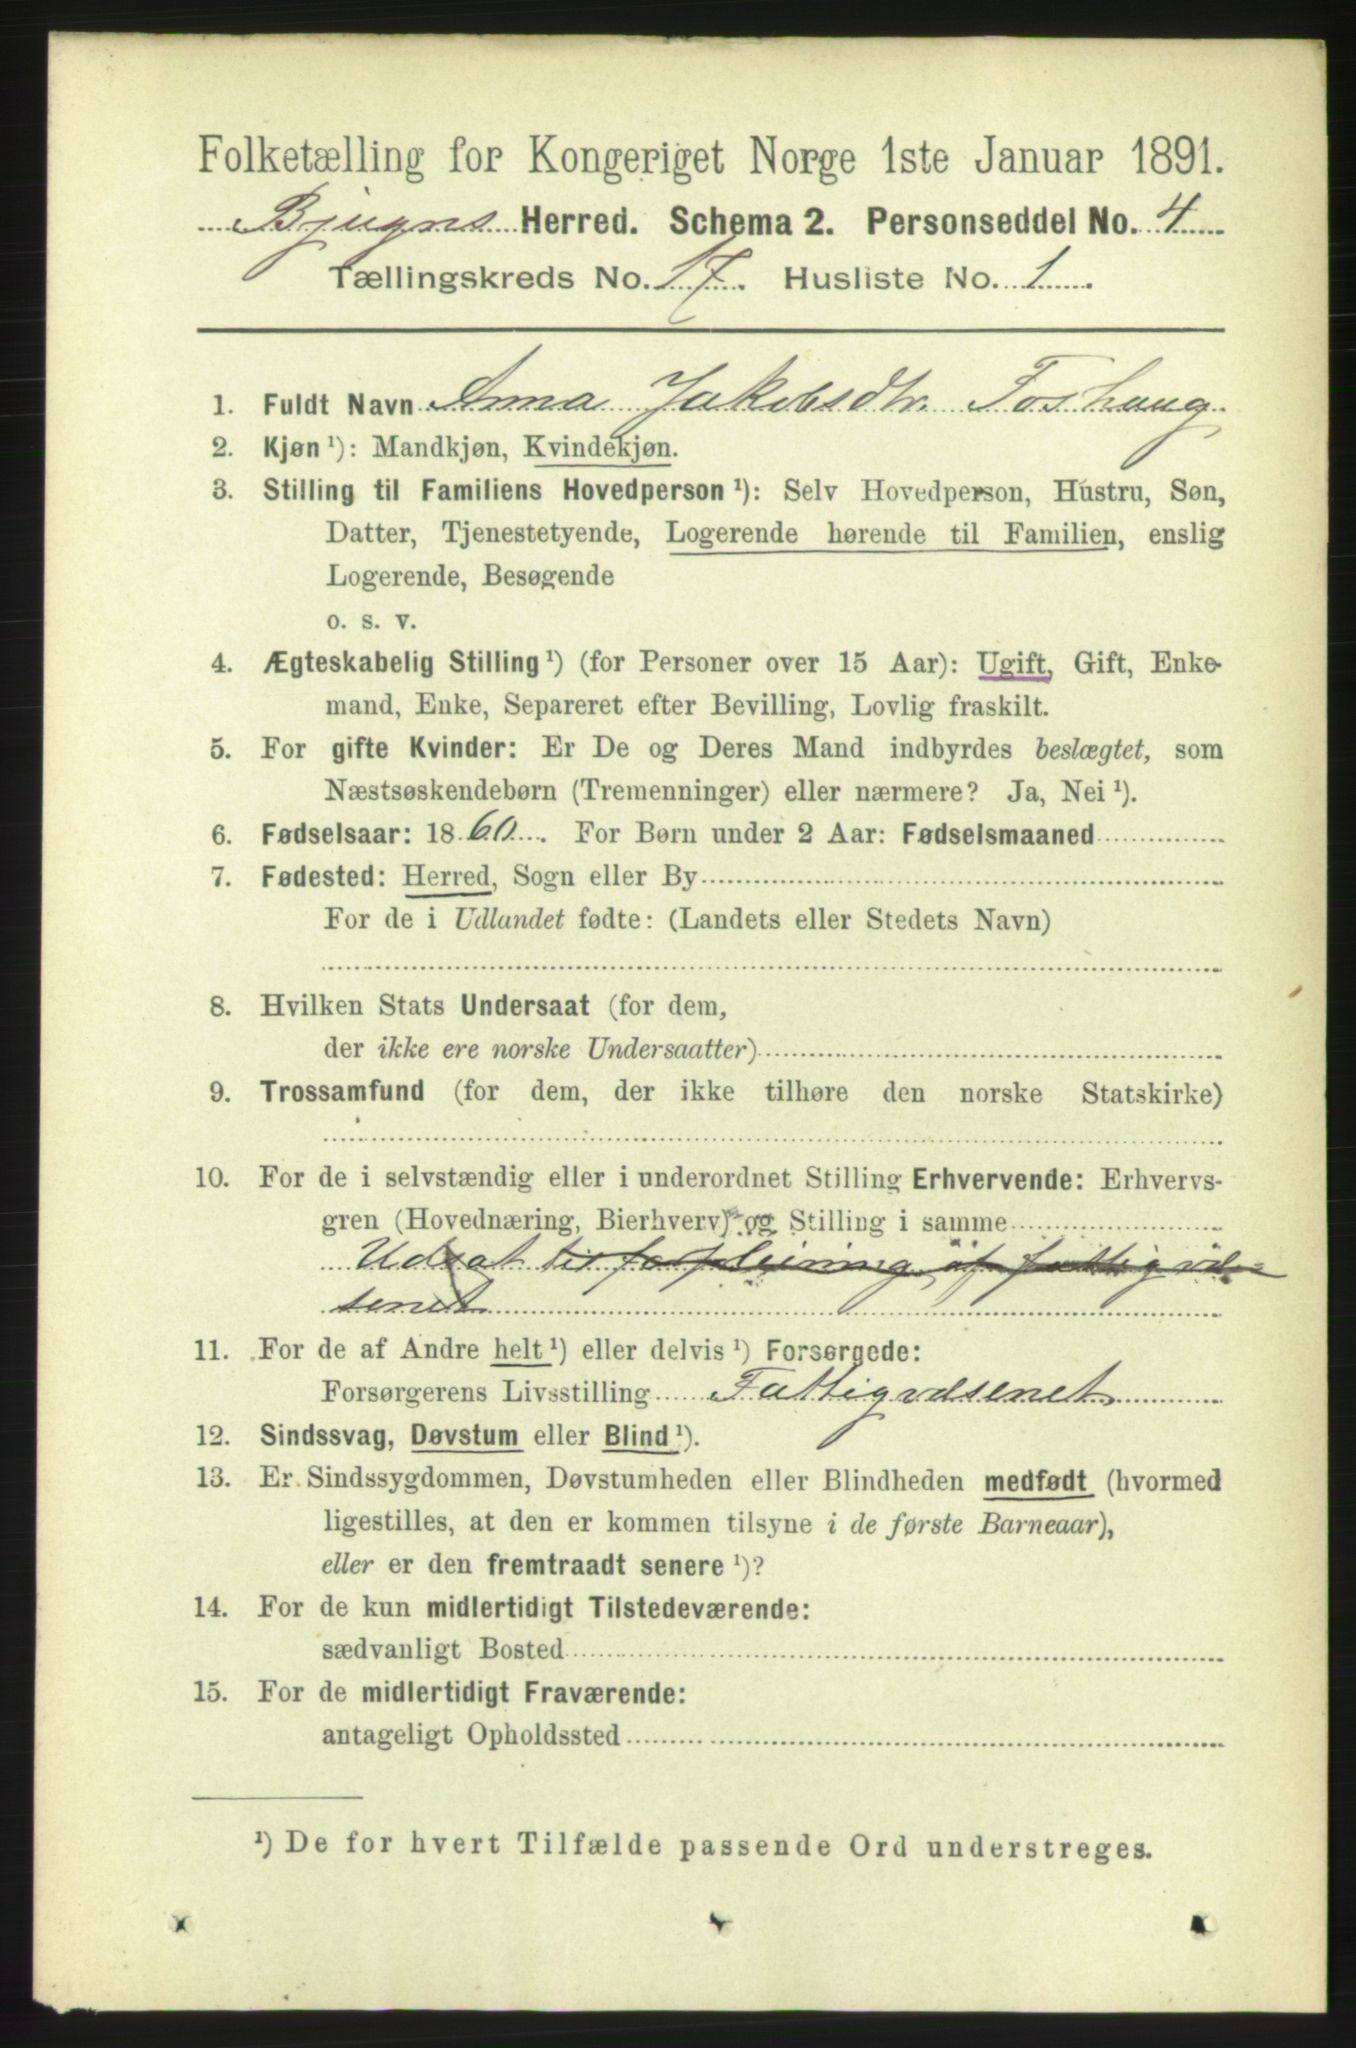 Folketælling for Kongeriget Norge 1ste Januar 1891.
Bjugns Herred. Schema 2. Personseddel No. 4
Tællingskreds No. 17. Husliste No. 1.
1. Fuldt Navn Anna Jakobsdtr. Foshaug
2. Kjøn ¹): Mandkjøn, Kvindekjøn.
3. Stilling til Familiens Hovedperson ¹): Selv Hovedperson, Hustru, Søn,
Datter, Tjenestetyende, Logerende hørende til Familien, enslig
Logerende, Besøgende
o. s. v.
4. Ægteskabelig Stilling ¹) (for Personer over 15 Aar): Ugift, Gift, Enke-
mand, Enke, Separeret efter Bevilling, Lovlig fraskilt.
5. For gifte Kvinder: Er De og Deres Mand indbyrdes beslægtet, som
Næstsøskendebørn (Tremenninger) eller nærmere? Ja, Nei ¹).
6. Fødselsaar: 1860. For Børn under 2 Aar: Fødselsmaaned
7. Fødested: Herred, Sogn eller By
For de i Udlandet fødte: (Landets eller Stedets Navn)
8. Hvilken Stats Undersaat (for dem,
der ikke ere norske Undersaatter)
9. Trossamfund (for dem, der ikke tilhøre den norske Statskirke)
10. For de i selvstændig eller i underordnet Stilling Erhvervende: Erhvervs-
gren (Hovednæring, Bierhverv) og Stilling i samme
Udsat til forpleining af fattigvæ-
senet
11. For de af Andre helt ¹) eller delvis ¹) Forsørgede:
Forsørgerens Livsstilling Fattigvæsenet
12. Sindssvag, Døvstum eller Blind ¹).
13. Er Sindssygdommen, Døvstumheden eller Blindheden medfødt (hvormed
ligestilles, at den er kommen tilsyne i de første Barneaar),
eller er den fremtraadt senere ¹)?
14. For de kun midlertidigt Tilstedeværende:
sædvanligt Bosted
15. For de midlertidigt Fraværende:
antageligt Opholdssted
¹) De for hvert Tilfælde passende Ord understreges.